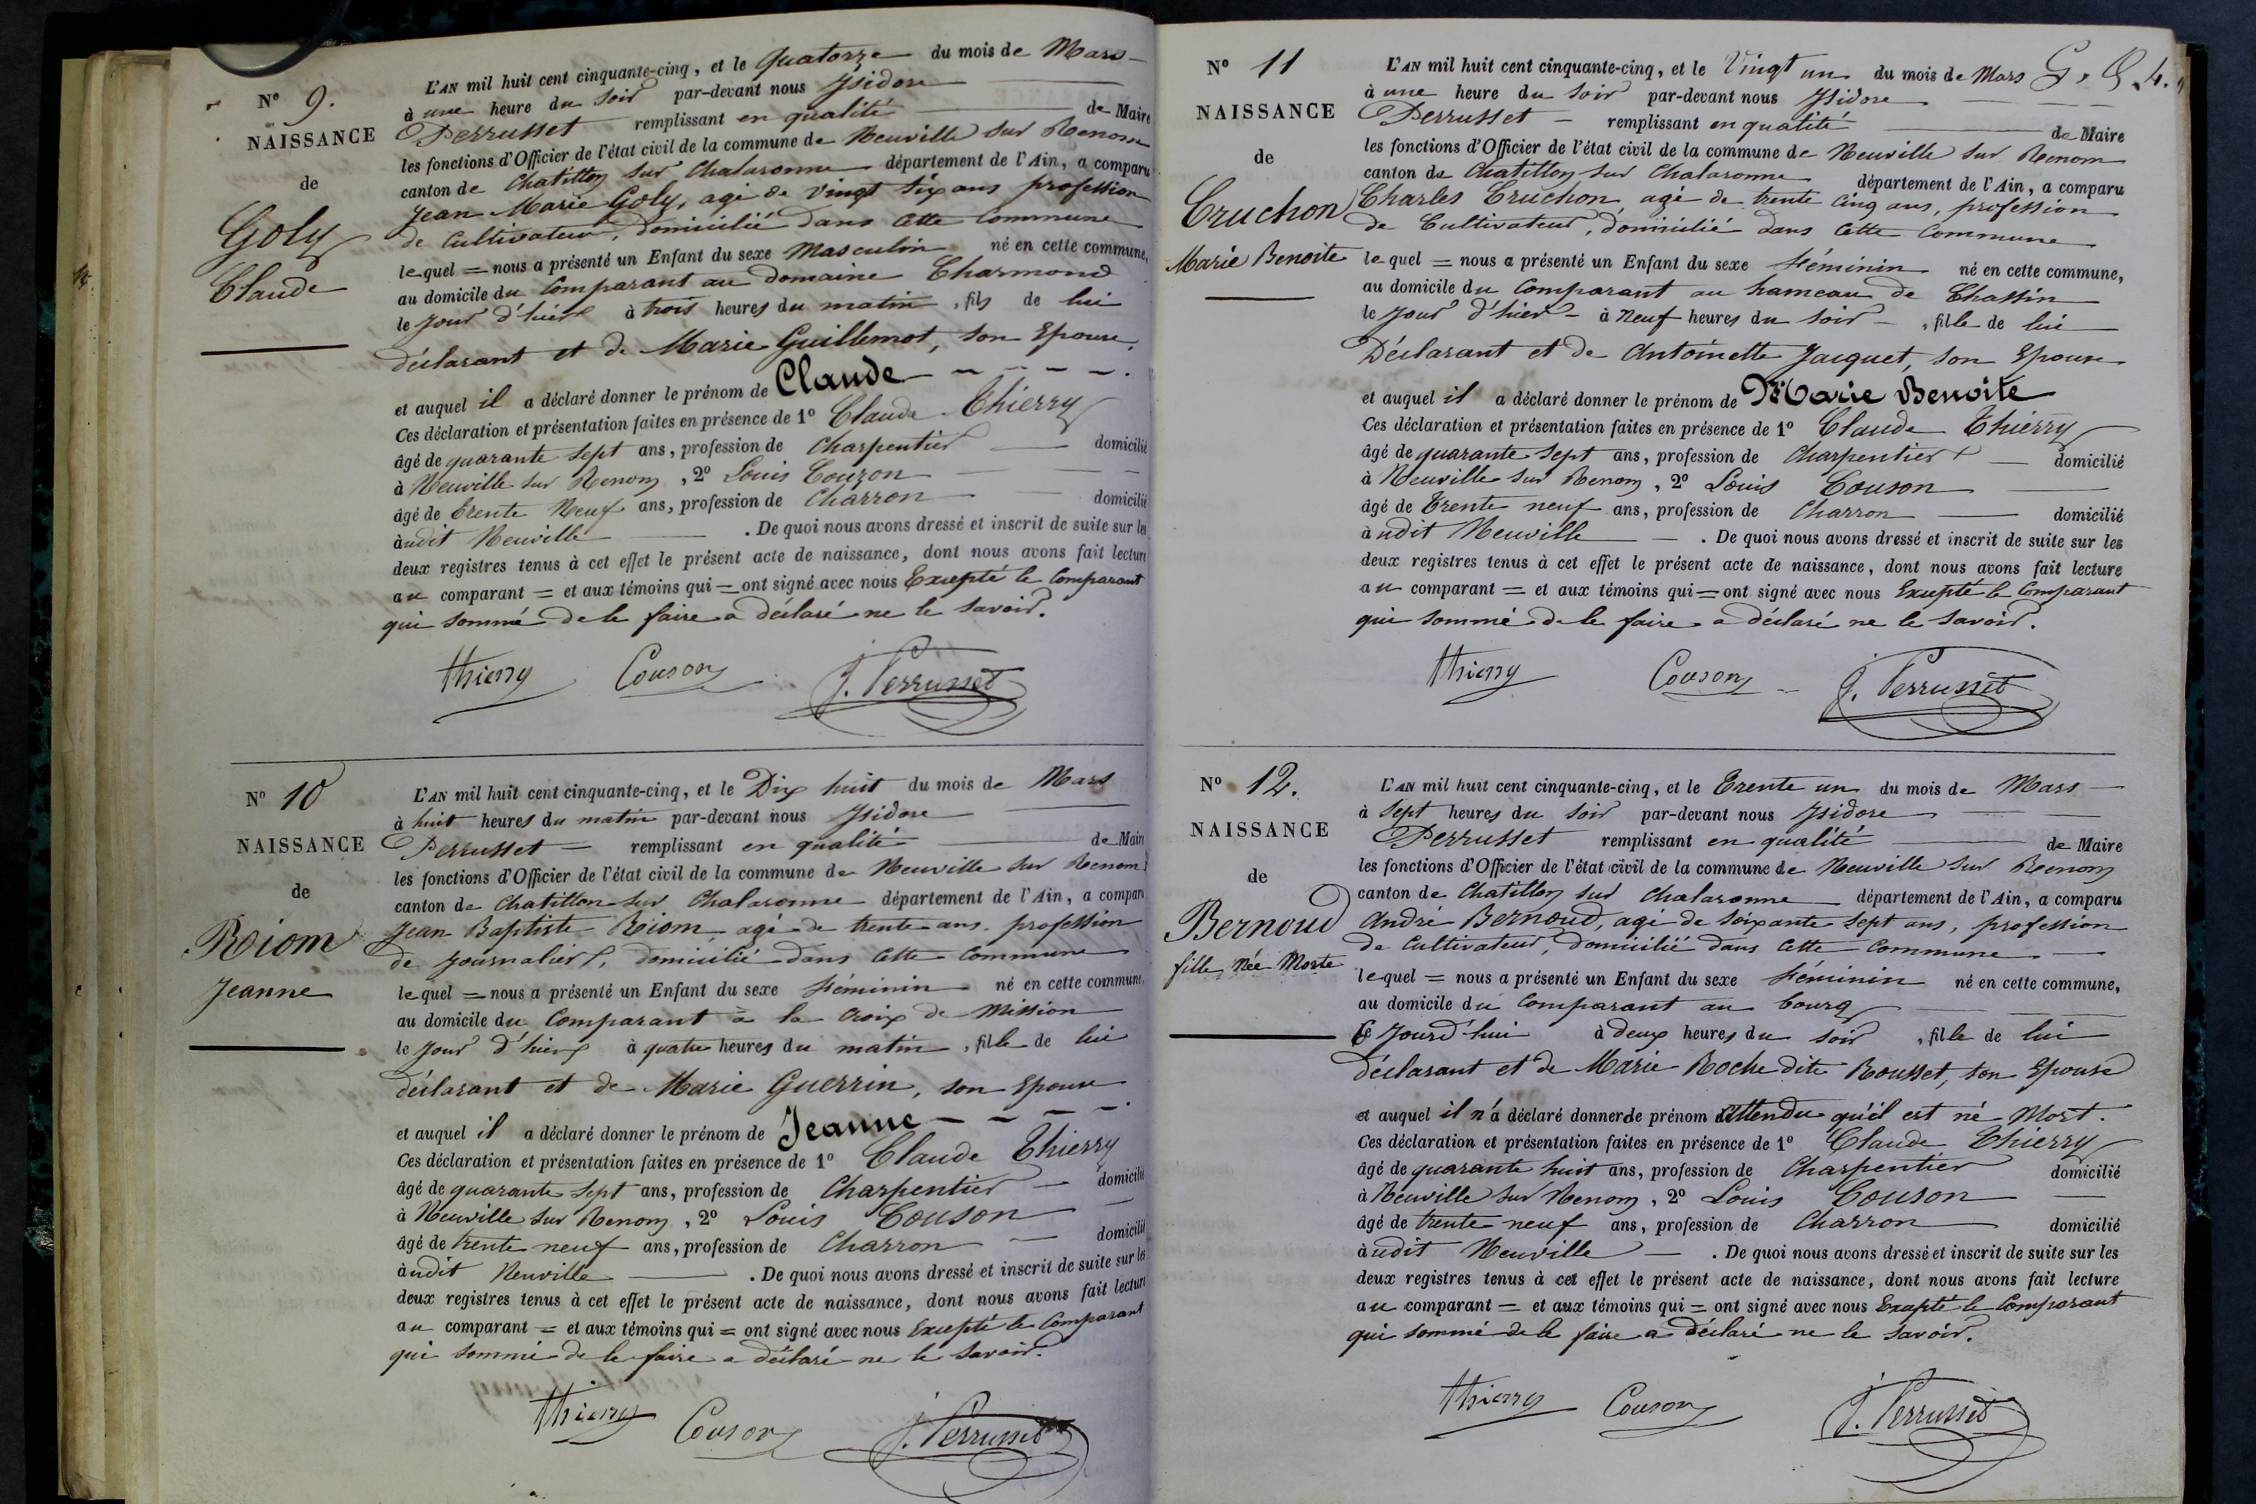 N° 9.
NAISSANCE
de
Goly
Claude
L'AN mil huit cent cinquante-cinq, et le Quatorze du mois de Mars
à une heure du soir par-devant nous Isidore
Perrusset remplissant en qualité de Maire
les fonctions d'Officier de l'état civil de la commune de Neuville sur Renom
canton de Chatillon sur Chalaronne département de l'Ain, a comparu
Jean Marie Goly, agé de vingt six ans profession
de Cultivateur, domicilié dans cette Commune
lequel = nous a présenté un Enfant du sexe Masculin né en cette commune,
au domicile du Comparant au domaine Charmond
le jour d'hier à trois heures du matin, fils de lui
déclarant et de Marie Guillemot, son Epouse.
et auquel il a déclaré donner le prénom de Claude
Ces déclaration et présentation faites en présence de 1° Claude Thierry
âgé de quarante sept ans, profession de Charpentier domicilié
à Neuville sur Renom, 2° Louis Couzon
âgé de trente Neuf ans, profession de Charron domicilié
àudit Neuville . De quoi nous avons dressé et inscrit de suite sur les
deux registres tenus à cet effet le présent acte de naissance, dont nous avons fait lecture
au comparant = et aux témoins qui = ont signé avec nous Excepté le Comparant
qui sommé de le faire a déclaré ne le savoir.
Thierry Couson J. Perrusset
N° 10
NAISSANCE
de
Roiom
Jeanne
L'AN mil huit cent cinquante-cinq, et le Dix huit du mois de Mars
à huit heures du matin par-devant nous Isidore
Perrusset remplissant en qualité de Maire
les fonctions d'Officier de l'état civil de la commune de Neuville sur Renom
canton de Chatillon sur Chalaronne département de l'Ain, a comparu
Jean Baptiste Roiom agé de trente ans. profession
de journalier, domicilié dans Cette Commune
lequel = nous a présenté un Enfant du sexe féminin né en cette commune,
au domicile du Comparant à la Croix de Mission
le jour d'hier à quatre heures du matin, fille de lui
déclarant et de Marie Guerrin, son Epouse
et auquel il a déclaré donner le prénom de Jeanne
Ces déclaration et présentation faites en présence de 1° Claude Thierry
âgé de quarante sept ans, profession de Charpentier domicilié
à Neuville sur Renom, 2° Louis Couson
âgé de trente neuf ans, profession de Charron domicilié
àudit Neuville . De quoi nous avons dressé et inscrit de suite sur les
deux registres tenus à cet effet le présent acte de naissance, dont nous avons fait lecture
au comparant = et aux témoins qui = ont signé avec nous Excepté le Comparant
qui sommé de le faire a déclaré ne le savoir.
Thierry Couson J. Perrusset
N° 11
NAISSANCE
de
Cruchon
Marie Benoite
L'AN mil huit cent cinquante-cinq, et le Vingt un du mois de Mars
à une heure du soir par-devant nous Isidore
Perrusset remplissant en qualité de Maire
les fonctions d'Officier de l'état civil de la commune de Neuville sur Renom
canton de Chatillon sur Chalaronne département de l'Ain, a comparu
Charles Cruchon agé de trente cinq ans, profession
de Cultivateur, domicilié dans Cette Commune
lequel = nous a présenté un Enfant du sexe féminin né en cette commune,
au domicile du Comparant au hameau de Chassin
le jour d'hier à Neuf heures du soir, fille de lui
Déclarant et de Antoinette Jacquet, son Epouse
et auquel il a déclaré donner le prénom de Marie Benoite
Ces déclaration et présentation faites en présence de 1° Claude Thierry
âgé de quarante sept ans, profession de Charpentier domicilié
à Neuville sur Renom, 2° Louis Couson
âgé de Trente neuf ans, profession de Charron domicilié
àudit Neuville . De quoi nous avons dressé et inscrit de suite sur les
deux registres tenus à cet effet le présent acte de naissance, dont nous avons fait lecture
au comparant = et aux témoins qui = ont signé avec nous Excepté le Comparant
qui sommé de le faire a déclaré ne le savoir.
Thierry Couson J. Perrusset
N° 12.
NAISSANCE
de
Bernoud
fille Née Morte
L'AN mil huit cent cinquante-cinq, et le Trente un du mois de Mars
à Sept heures du soir par-devant nous Isidore
Perrusset remplissant en qualité de Maire
les fonctions d'Officier de l'état civil de la commune de Neuville sur Renom
canton de Chatillon sur Chalaronne département de l'Ain, a comparu
André Bernoud, agé de soixante sept ans, profession
de Cultivateur, domicilié dans Cette Commune
lequel = nous a présenté un Enfant du sexe féminin né en cette commune,
au domicile du Comparant au bourg
Ce Jourd'hui à deux heures du soir, fille de lui
déclarant et de Marie Roche dite Rousset, son Epouse
et auquel il n'a déclaré donner de prénom attendu qu'il est né Mort.
Ces déclaration et présentation faites en présence de 1° Claude Thierry
âgé de quarante huit ans, profession de Charpentier domicilié
à Neuville sur Renom, 2° Louis Couson
âgé de trente neuf ans, profession de Charron domicilié
àudit Neuville . De quoi nous avons dressé et inscrit de suite sur les
deux registres tenus à cet effet le présent acte de naissance, dont nous avons fait lecture
au comparant = et aux témoins qui = ont signé avec nous Excepté le Comparant
qui sommé de le faire a déclaré ne le savoir.
Thierry Couson J. Perrusset